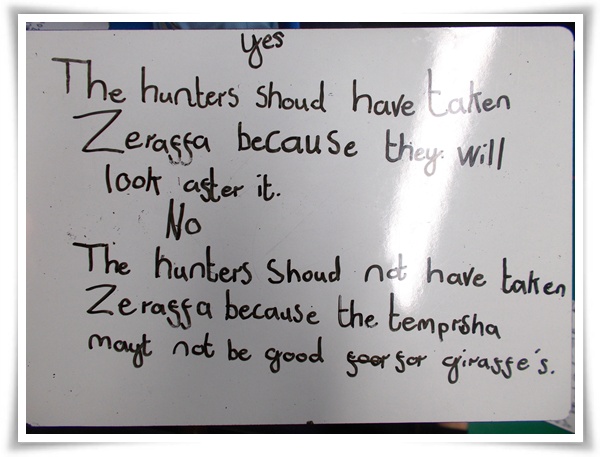 yes
The hunters shoud have taken
Zeraffa because they will
look after it.
No
The hunters shoud not have taken
Zeraffa because the temprsha
mayt not be good foor for giraffe's.